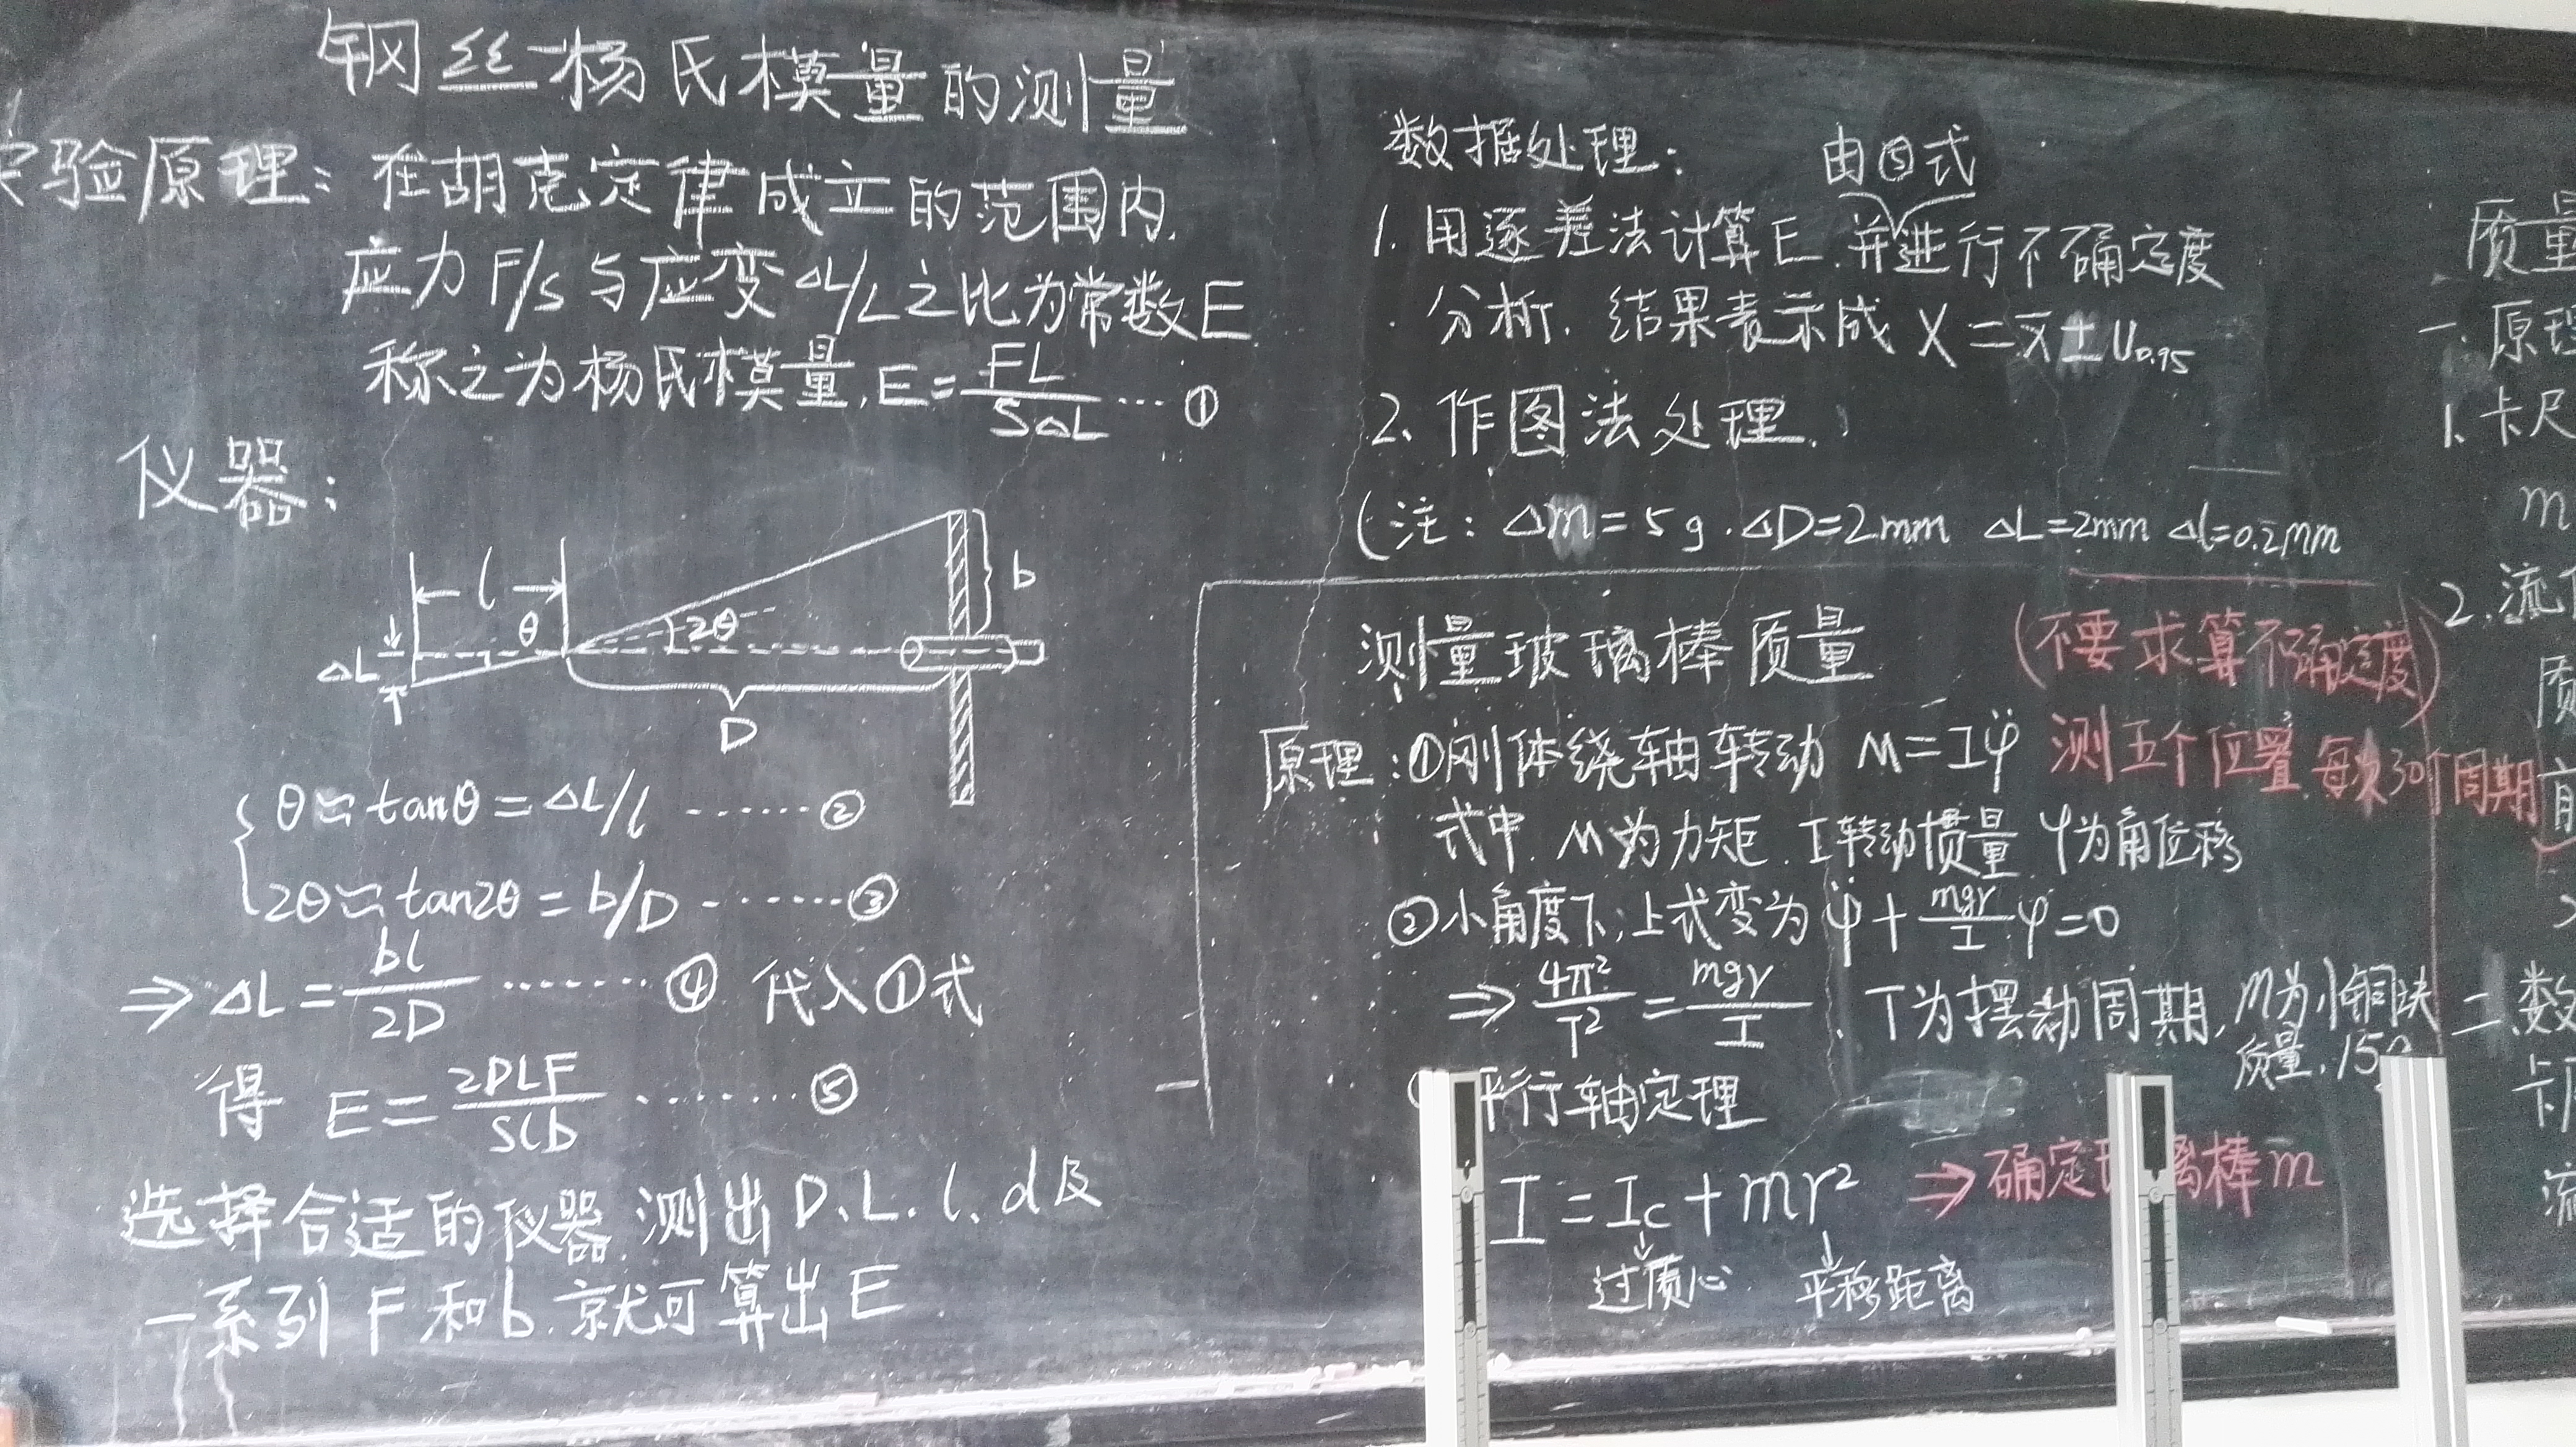 钢丝杨氏模量的测量
实验原理: 在胡克定律成立的范围内,
应力F/s与应变ΔL/L之比为常数E
称之为杨氏模量, E=FL/SΔL ... ①
仪器:
l
θ
2θ
b
ΔL
D
θ≈tanθ=ΔL/l ...... ②
2θ≈tan2θ=b/D ....... ③
⇒ΔL=bl/2D ....... ④ 代入①式
得 E=2DLF/Slb ....... ⑤
选择合适的仪器,测出D、L、l、d及
一系列F和b,就可算出E
数据处理: 由⑤式
1. 用逐差法计算E,并进行不确定度
分析. 结果表示成 X=x̄±U0.95
2、作图法处理.
(注: Δm=5g. ΔD=2mm ΔL=2mm Δl=0.2mm
测量玻璃棒质量 (不要求算不确定度)
原理: ①刚体绕轴转动 M=Iφ̈ 测五个位置,每次30个周期
式中. M为力矩. I转动惯量 φ为角位移
②小角度下,上式变为 φ̈+mgr/I φ=0
⇒4π²/T²=mgr/I . T为摆动周期, m为小铜块
质量. 15g
平行轴定理
I=Ic+mr² ⇒确定 离棒m
过质心 平移距离
质量
一.原理
1.卡尺
m
2.流
质
二.数
卡
流